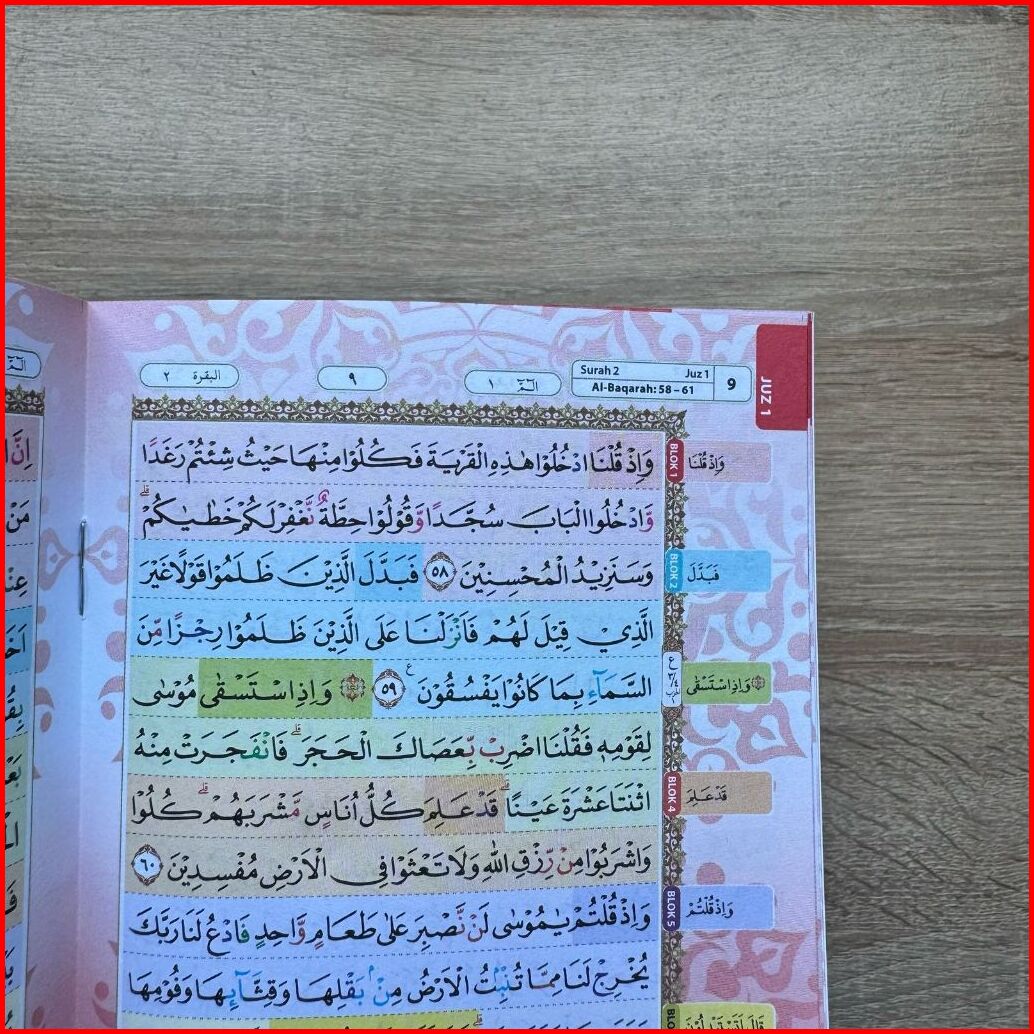 الٓمّٓ ١
٩
البقرة ٢
Surah 2 Juz 1
Al-Baqarah: 58 – 61
9
JUZ 1
وَاِذْ قُلْنَا ادْخُلُوْا هٰذِهِ الْقَرْيَةَ فَكُلُوْا مِنْهَا حَيْثُ شِئْتُمْ رَغَدًا
وَّادْخُلُوا الْبَابَ سُجَّدًا وَّقُوْلُوْا حِطَّةٌ نَّغْفِرْ لَكُمْ خَطٰيٰكُمْ ۗ
وَسَنَزِيْدُ الْمُحْسِنِيْنَ ٥٨ فَبَدَّلَ الَّذِيْنَ ظَلَمُوْا قَوْلًا غَيْرَ
الَّذِيْ قِيْلَ لَهُمْ فَاَنْزَلْنَا عَلَى الَّذِيْنَ ظَلَمُوْا رِجْزًا مِّنَ
السَّمَاۤءِ بِمَا كَانُوْا يَفْسُقُوْنَ ࣖ ٥٩ ۞ وَاِذِ اسْتَسْقٰى مُوْسٰى
لِقَوْمِهٖ فَقُلْنَا اضْرِبْ بِّعَصَاكَ الْحَجَرَۗ فَانْفَجَرَتْ مِنْهُ
اثْنَتَا عَشْرَةَ عَيْنًاۗ قَدْ عَلِمَ كُلُّ اُنَاسٍ مَّشْرَبَهُمْۗ كُلُوْا
وَاشْرَبُوْا مِنْ رِّزْقِ اللّٰهِ وَلَا تَعْثَوْا فِى الْاَرْضِ مُفْسِدِيْنَ ٦٠
وَاِذْ قُلْتُمْ يٰمُوْسٰى لَنْ نَّصْبِرَ عَلٰى طَعَامٍ وَّاحِدٍ فَادْعُ لَنَا رَبَّكَ
يُخْرِجْ لَنَا مِمَّا تُنْۢبِتُ الْاَرْضُ مِنْۢ بَقْلِهَا وَقِثَّاۤىِٕهَا وَفُوْمِهَا
BLOK 1 وَاِذْ قُلْنَا
BLOK 2 فَبَدَّلَ
۞ وَاِذِ اسْتَسْقٰى
BLOK 4 قَدْ عَلِمَ
BLOK 5 وَاِذْ قُلْتُمْ